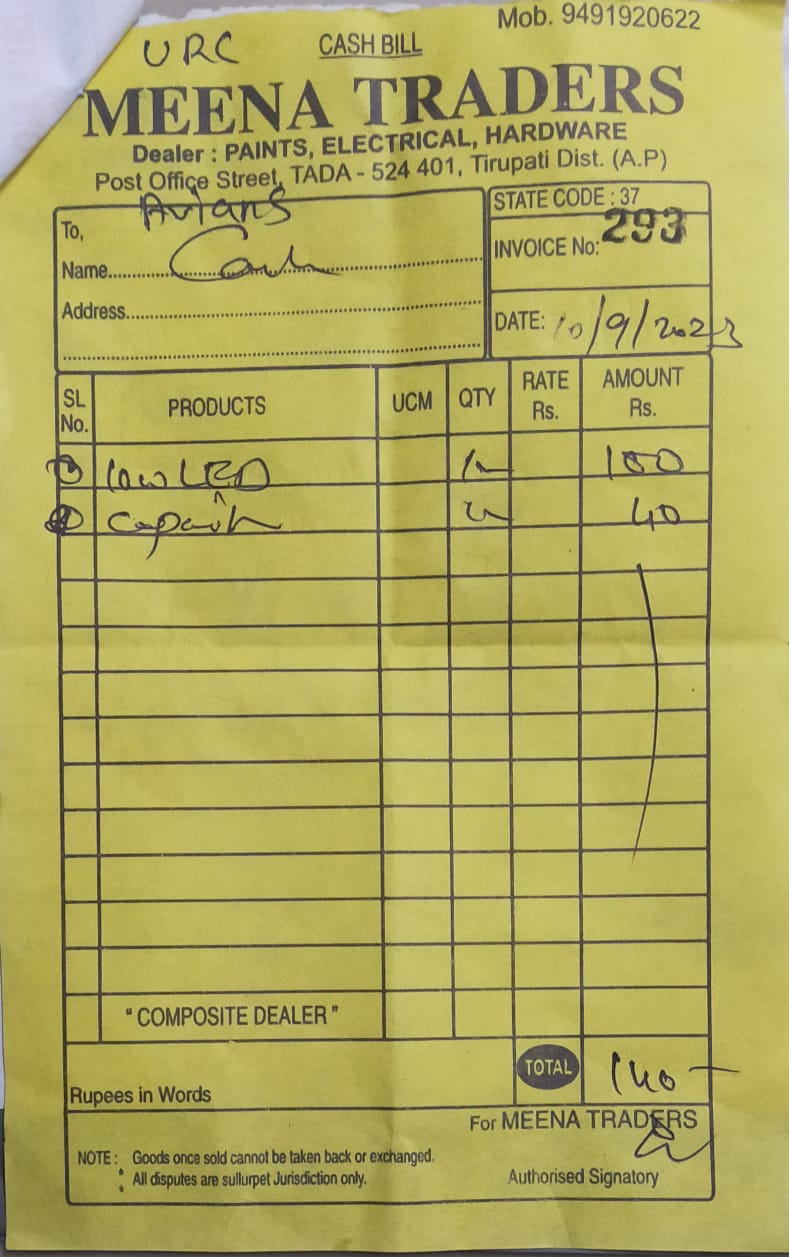 Mob. 9491920622
URC
CASH BILL
MEENA TRADERS
Dealer : PAINTS, ELECTRICAL, HARDWARE
Post Office Street, TADA - 524 401, Tirupati Dist. (A.P)
Avians
To,
Name
Cash
Address
STATE CODE : 37
INVOICE No: 293
DATE: 10/9/2023
SL No. PRODUCTS UCM QTY RATE Rs. AMOUNT Rs.
① LED 100
② 40
" COMPOSITE DEALER "
TOTAL 140
Rupees in Words
For MEENA TRADERS
NOTE : Goods once sold cannot be taken back or exchanged.
* All disputes are sullurpet Jurisdiction only.
Authorised Signatory